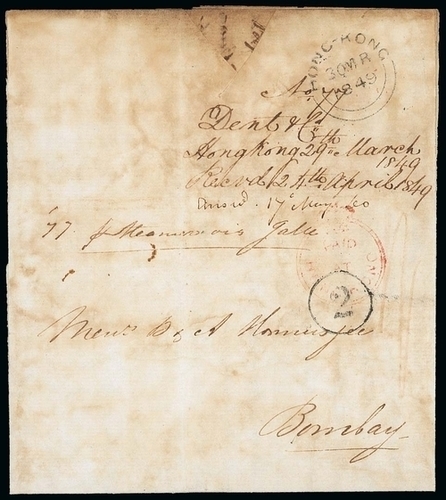 HONG-KONG
30MR
1849
No.
Dent & Co
Hongkong 29th March
1849
Recvd 24th April 1849
17 May
77. p Steamer via Galle
PAID
2
Messrs D & A
Bombay